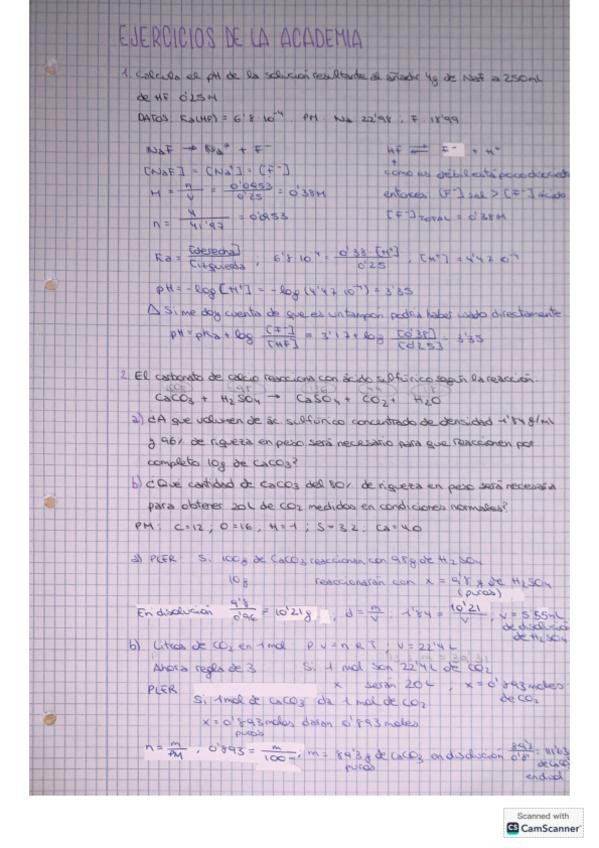 EJERCICIOS DE LA ACADEMIA
1. Calcula el pH de la solución resultante de añadir 4g de NaF a 250ml
de HF 0'25M
DATOS: Ka(HF) = 6'8 10⁻⁴ PM: Na 22'98, F: 18'99
NaF → Na⁺ + F⁻ HF ⇌ F⁻ + H⁺
[NaF] = [Na⁺] = [F⁻] como es débil está poco disociado
M = n/V = 0'0953/0'25 = 0'38M entonces [F⁻] sal > [F⁻] ácido
n = 4/41'97 = 0'0953 [F⁻] TOTAL = 0'38M
Ka = [derecha]/[izquierda] ; 6'8 10⁻⁴ = 0'38 [H⁺]/0'25 , [H⁺] = 4'47 10⁻⁴
pH = -log [H⁺] = -log (4'47 10⁻⁴) = 3'35
△ Si me doy cuenta de que es un tampon podría haber usado directamente
pH = pKa + log [F⁻]/[HF] = 3'17 + log [0'38]/[0'25] = 3'35
2. El carbonato de calcio reacciona con ácido sulfúrico según la reacción.
CaCO₃ + H₂SO₄ → CaSO₄ + CO₂ + H₂O
a) ¿A que volumen de ác sulfúrico concentrado de densidad 1'84 g/ml
y 96% de riqueza en peso será necesario para que reaccionen por
completo 10g de CaCO₃?
b) ¿Qué cantidad de CaCO₃ del 80% de riqueza en peso será necesaria
para obtener 20L de CO₂ medidos en condiciones normales?
PM: C=12; O=16, H=1; S=32, Ca=40
a) PLER Si 100g de CaCO₃ reaccionen con 98g de H₂SO₄
10g reaccionarán con x = 9'8 g de H₂SO₄
(puros)
En disolución 9'8/0'96 = 10'21g , d = m/v 1'84 = 10'21/v , v = 5'55mL
de disolución
de H₂SO₄
b) Litros de CO₂ en 1mol P V = n R T , V = 22'4L
Ahora regla de 3 Si 1 mol son 22'4L de CO₂
x serán 20L , x = 0'893 moles
de CO₂
PLER Si 1mol de CaCO₃ da 1 mol de CO₂
x = 0'893 moles daran 0'893 moles
puros
n = m/PM , 0'893 = m/100 , m = 89'3 g de CaCO₃ en disolución
puros
Scanned with
CS CamScanner